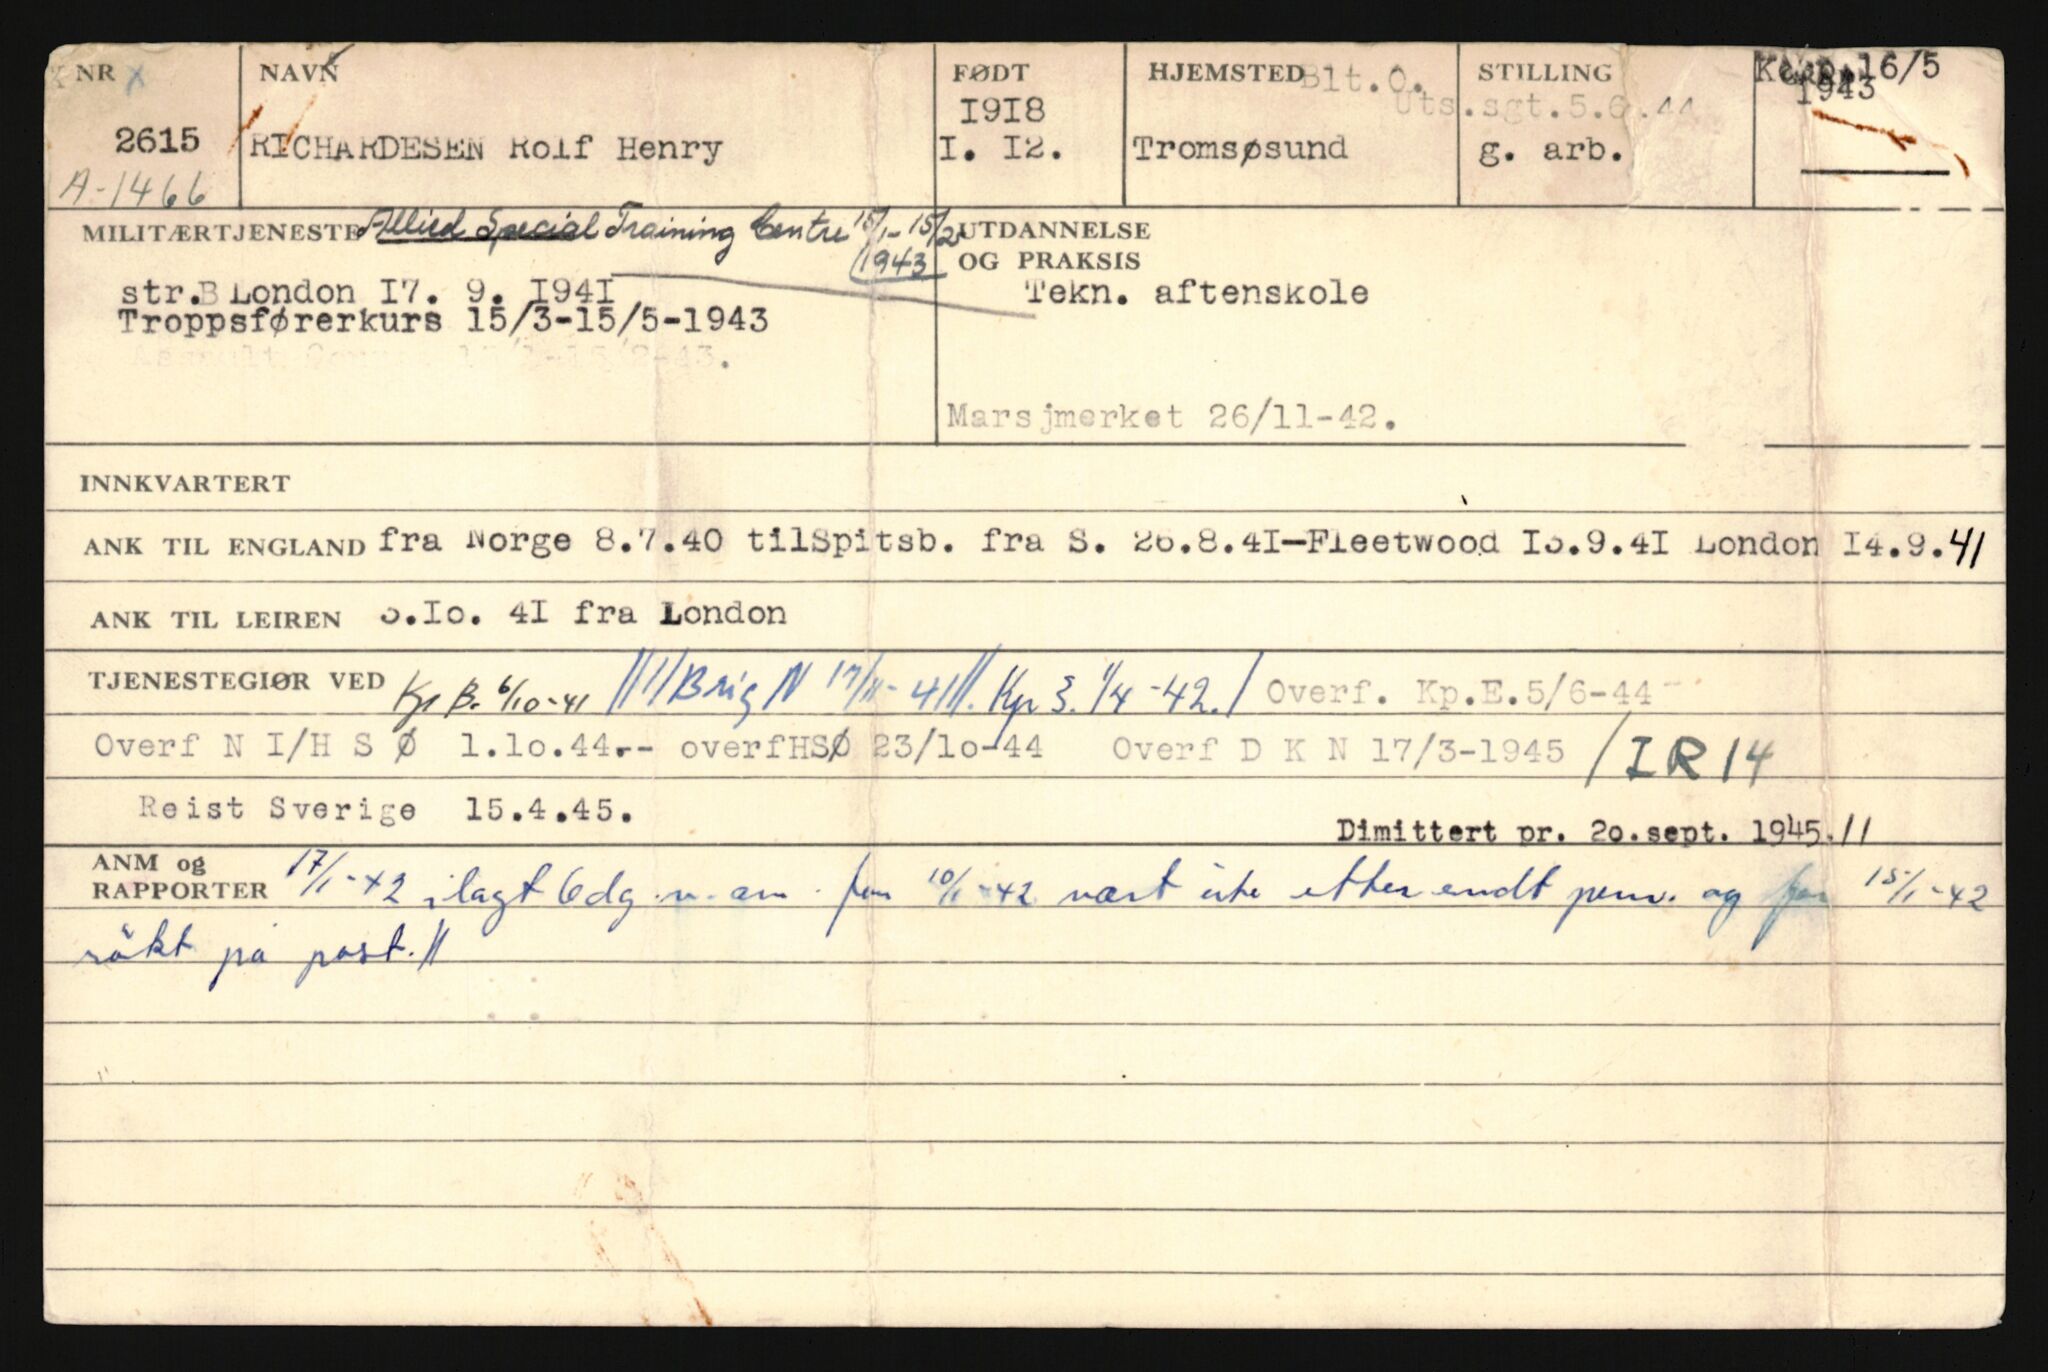 NR x NAVN FØDT HJEMSTED Blt.O. STILLING Korp. 16/5
1918 Uts.sgt.5.6.44 1943
2615 RICHARDESEN Rolf Henry I. I2. Tromsøsund g. arb.
A-1466
MILITÆRTJENESTE Allied Special Training Centre 15/1-15/2 1943
str.B London I7. 9. I94I
Troppsførerkurs 15/3-15/5-1943
UTDANNELSE
OG PRAKSIS
Tekn. aftenskole
Marsjmerket 26/11-42.
INNKVARTERT
ANK TIL ENGLAND fra Norge 8.7.40 tilSpitsb. fra S. 26.8.4I-Fleetwood I3.9.4I London I4.9.41
ANK TIL LEIREN 3.Io. 4I fra London
TJENESTEGIØR VED Kp B. 6/10-41 //1/Brig N 17/11-41//. Kp 3. 1/4-42./ Overf. Kp.E.5/6-44
Overf N I/H S Ø 1.1o.44.-- overfHSØ 23/1o-44 Overf D K N 17/3-1945 /IR 14
Reist Sverige 15.4.45.
Dimittert pr. 2o.sept. 1945.//
ANM og
RAPPORTER 17/1-42 ilagt 6 dg. v. am. for 10/1-42 vært ute etter endt perm. og for 15/1-42
røkt på post.//